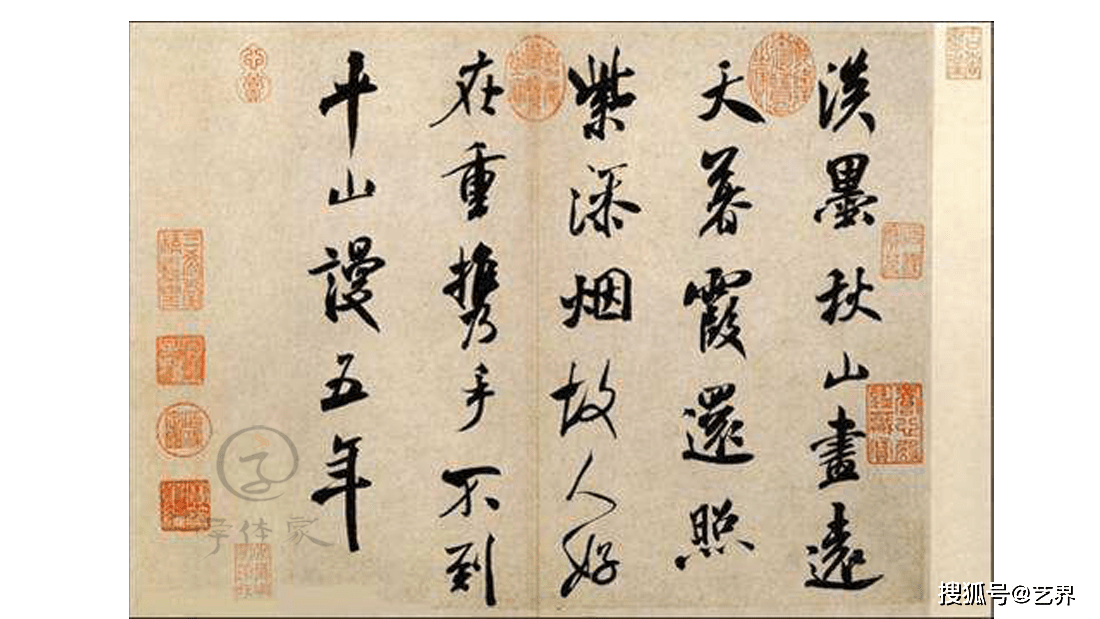 淡墨秋山畫遠
天暮霞還照
紫添烟故人好
在重携手不到
平山謾五年
字体家
搜狐号@艺界